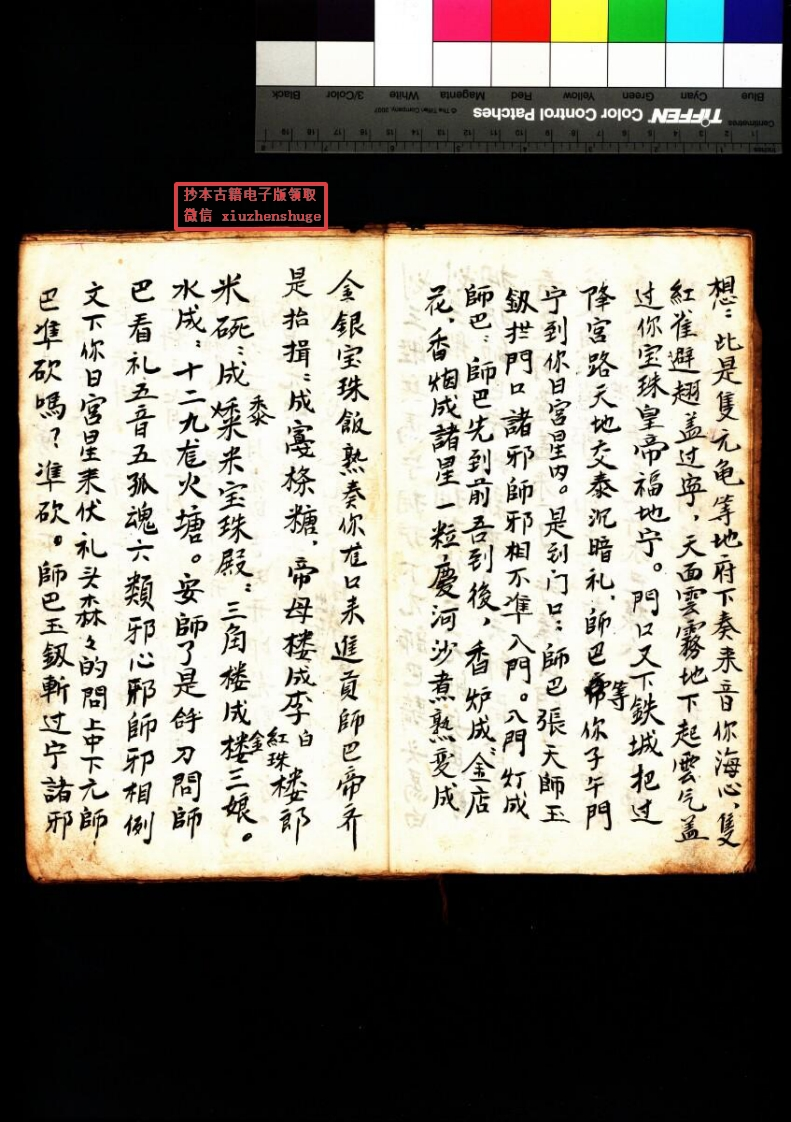 Blue Cyan Green Yellow Red Magenta White 3/Color Black
TIFFEN Color Control Patches
© The Tiffen Company, 2007
Centimetres
Inches
抄本古籍电子版领取
微信 xiuzhenshuge
想：此是隻元龟等地府下奏来音你海心、隻
紅雀避翅盖过宁，天面雲霧地下起雲气盖
过你宝珠皇帝福地宁。門口又下鉄城把过
降宫路天地交泰沉暗礼、師巴等你子午門
宁到你日宫星内。是到门口：師巴張天師玉
釼拦門口諸邪師邪相不準入門。入門灯成
師巴：師巴先到前吾到後，香炉成金店
花，香烟成諸星一粒慶河沙煮熟变成
金銀宝珠飯熟奏你 口来進貢師巴帝齐
是抬揖：成 條糖，帝母楼成李白紅珠金楼郎
米 ：成黍 米宝珠殿：三角楼成楼三娘。
水成：十二九 火塘。安師了是 刀問師
巴看礼五音五孤魂六類邪心邪師邪相例
文下你日宫星来伏礼头森々的問上中下元師
巴準砍嗎？準砍。師巴玉釼斬过宁諸邪